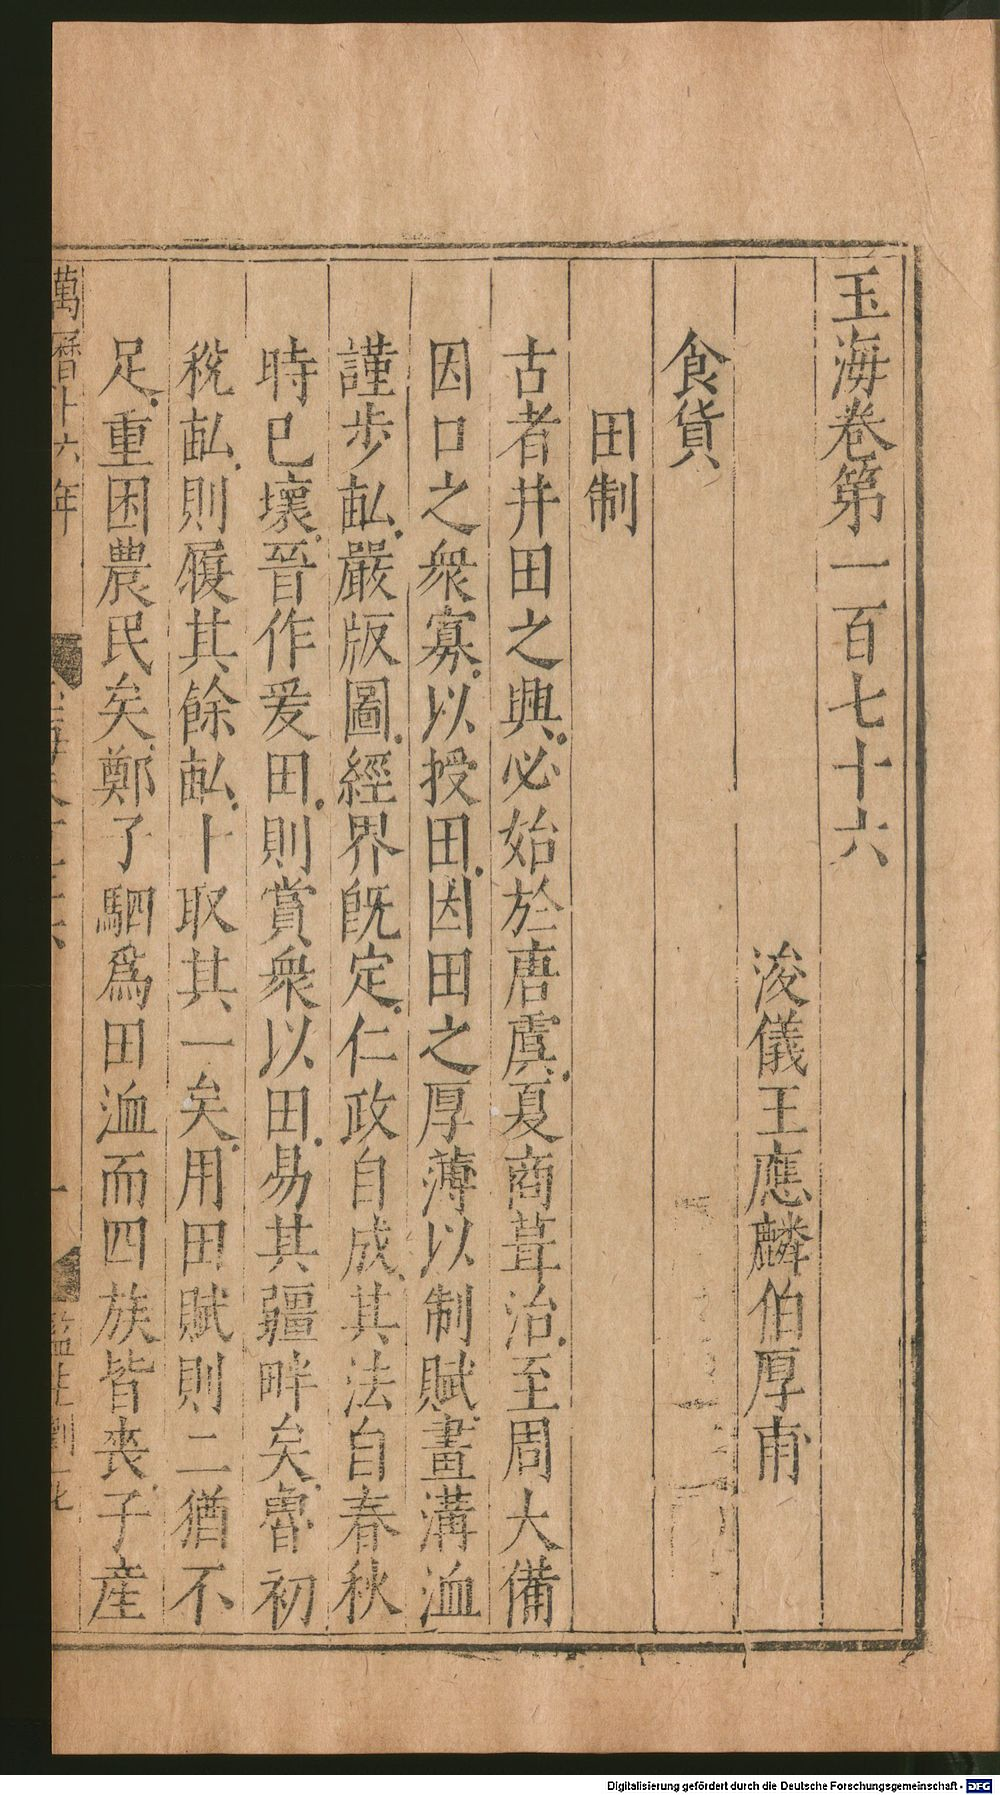 玉海卷第一百七十六
浚儀王應麟伯厚甫
食貨
田制
古者井田之興必始於唐虞夏商葺治至周大備
因口之衆寡以授田因田之厚薄以制賦畫溝洫
謹步畝嚴版圖經界旣定仁政自成其法自春秋
時已壞晉作爰田則賞衆以田易其疆畔矣魯初
稅畝則履其餘畝十取其一矣用田賦則二猶不
足重困農民矣鄭子駟爲田洫而四族皆喪子産
萬曆十六年
一
Digitalisierung gefördert durch die Deutsche Forschungsgemeinschaft - DFG